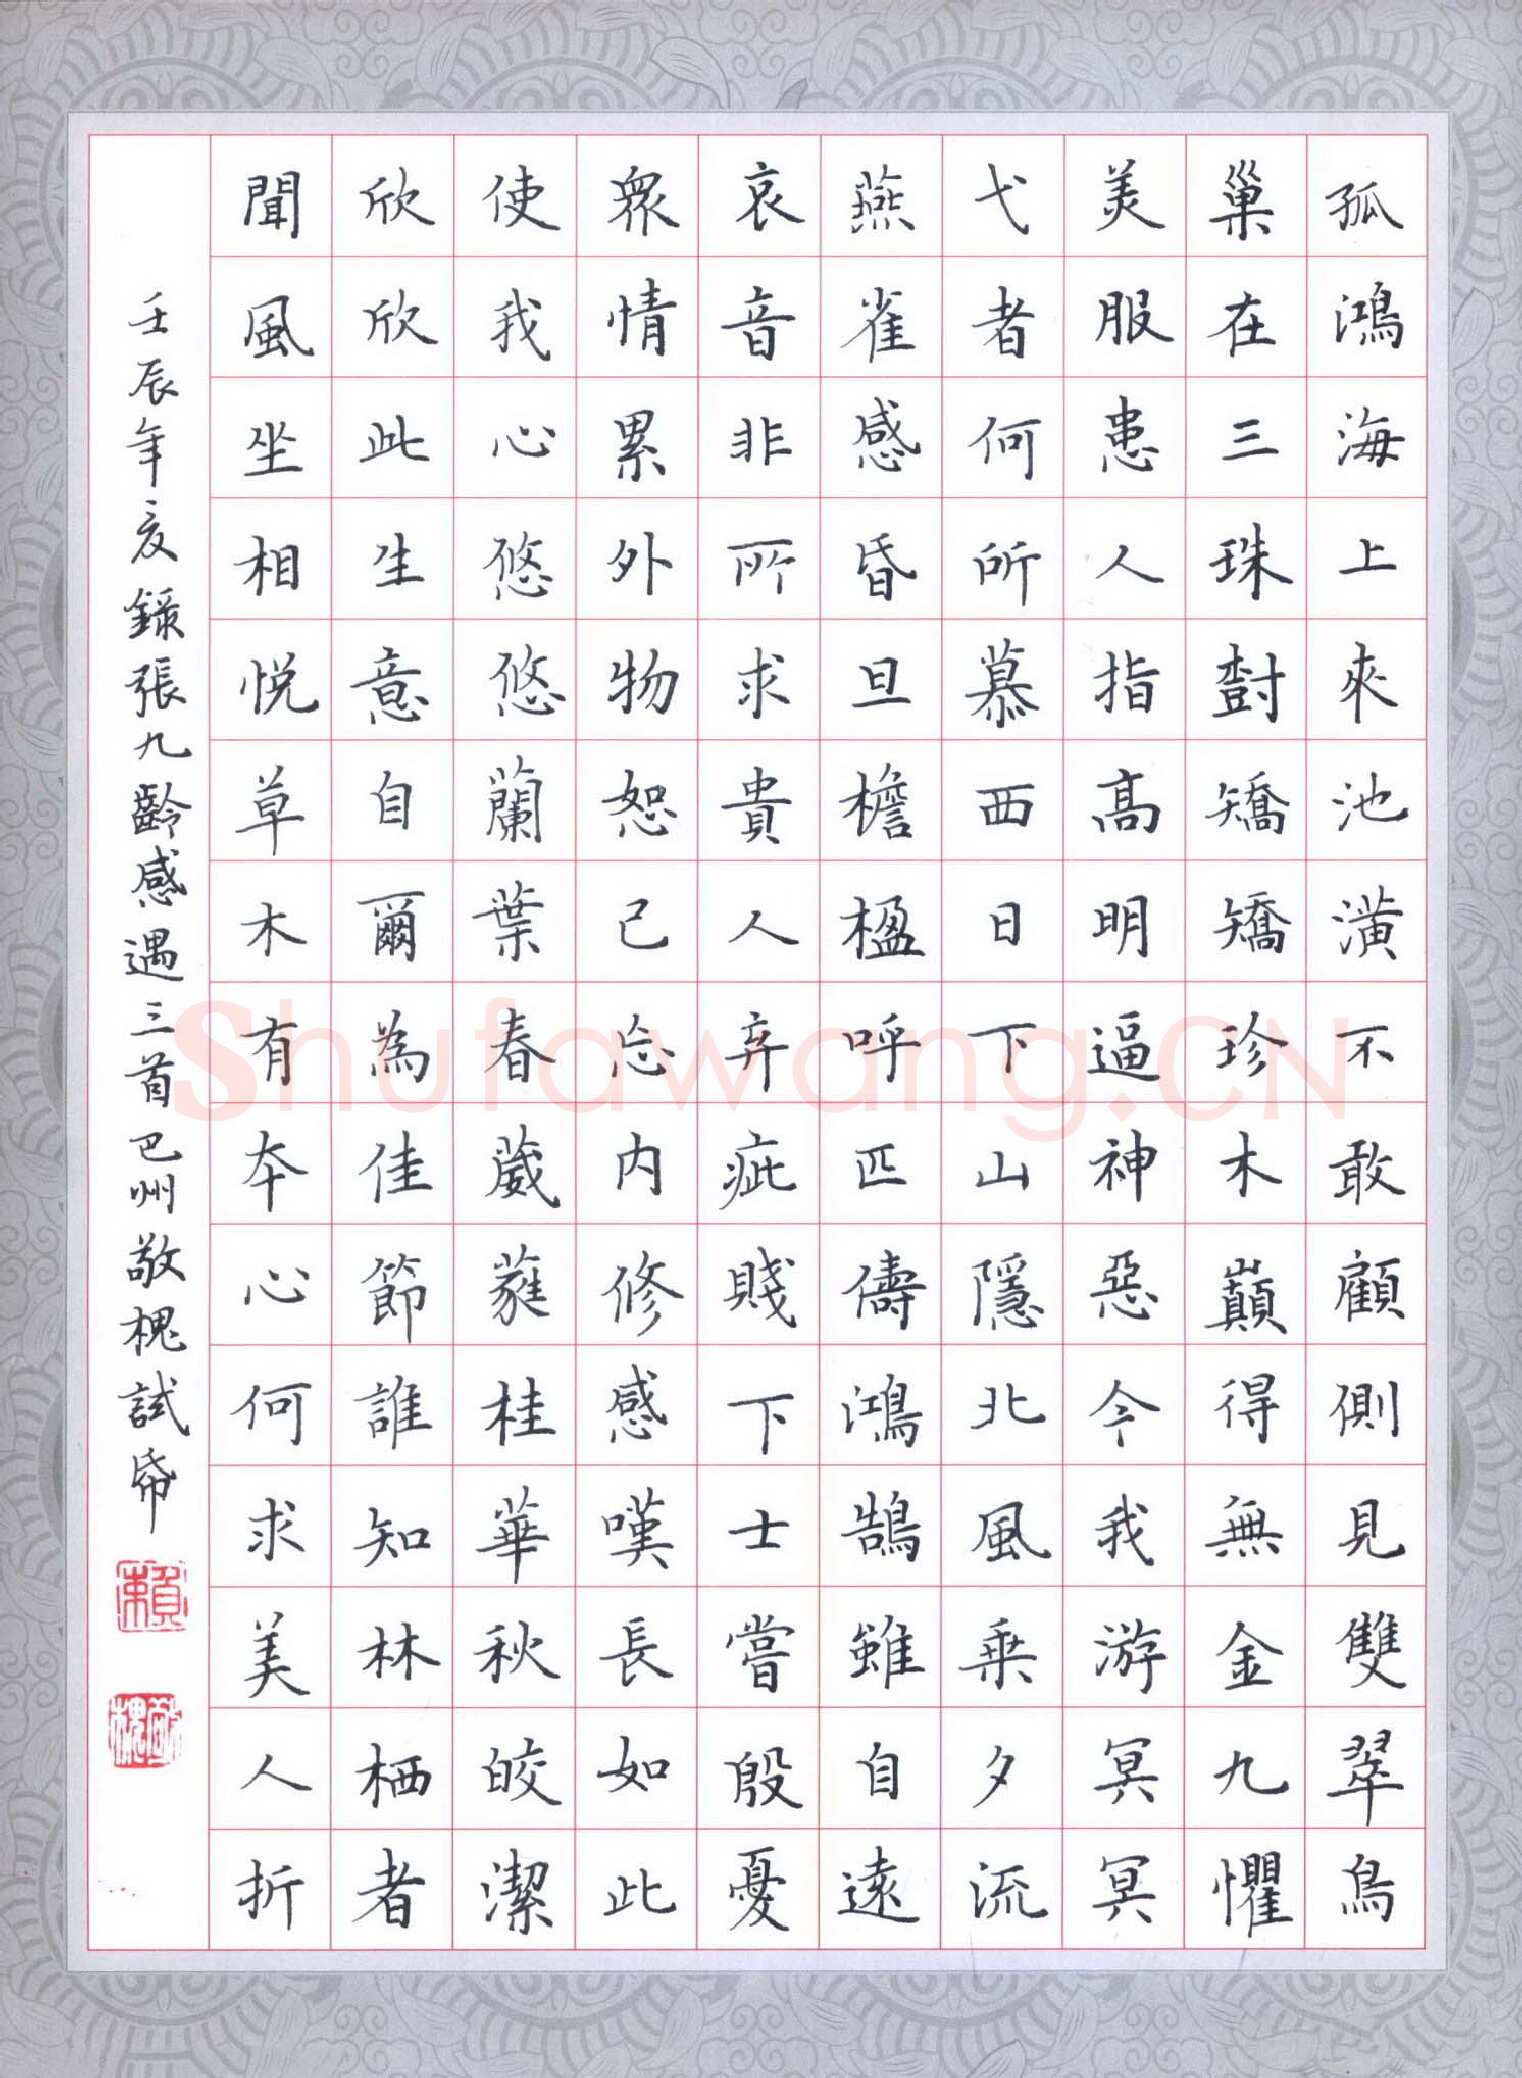 孤鴻海上來池潢不敢顧側見雙翠鳥
巢在三珠樹矯矯珍木巔得無金九懼
美服患人指高明逼神惡今我游冥冥
弋者何所慕西日下山隱北風乘夕流
燕雀感昏旦檐楹呼匹儔鴻鵠雖自遠
哀音非所求貴人弃疵賤下士嘗殷憂
眾情累外物恕己忘内修感嘆長如此
使我心悠悠蘭葉春葳蕤桂華秋皎潔
欣欣此生意自爾為佳節誰知林栖者
聞風坐相悦草木有本心何求美人折
壬辰年夏錄張九齡感遇三首巴州敬槐試帋
賴
敬槐
Shufawang.CN